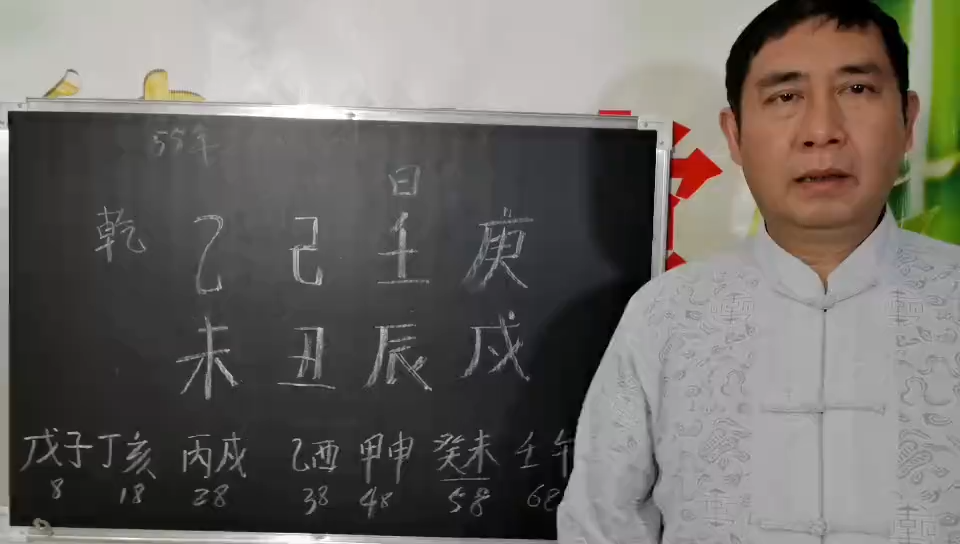 55年
日
乾 乙 己 壬 庚
未 丑 辰 戌
戊子 丁亥 丙戌 乙酉 甲申 癸未 壬午
8 18 28 38 48 58 68